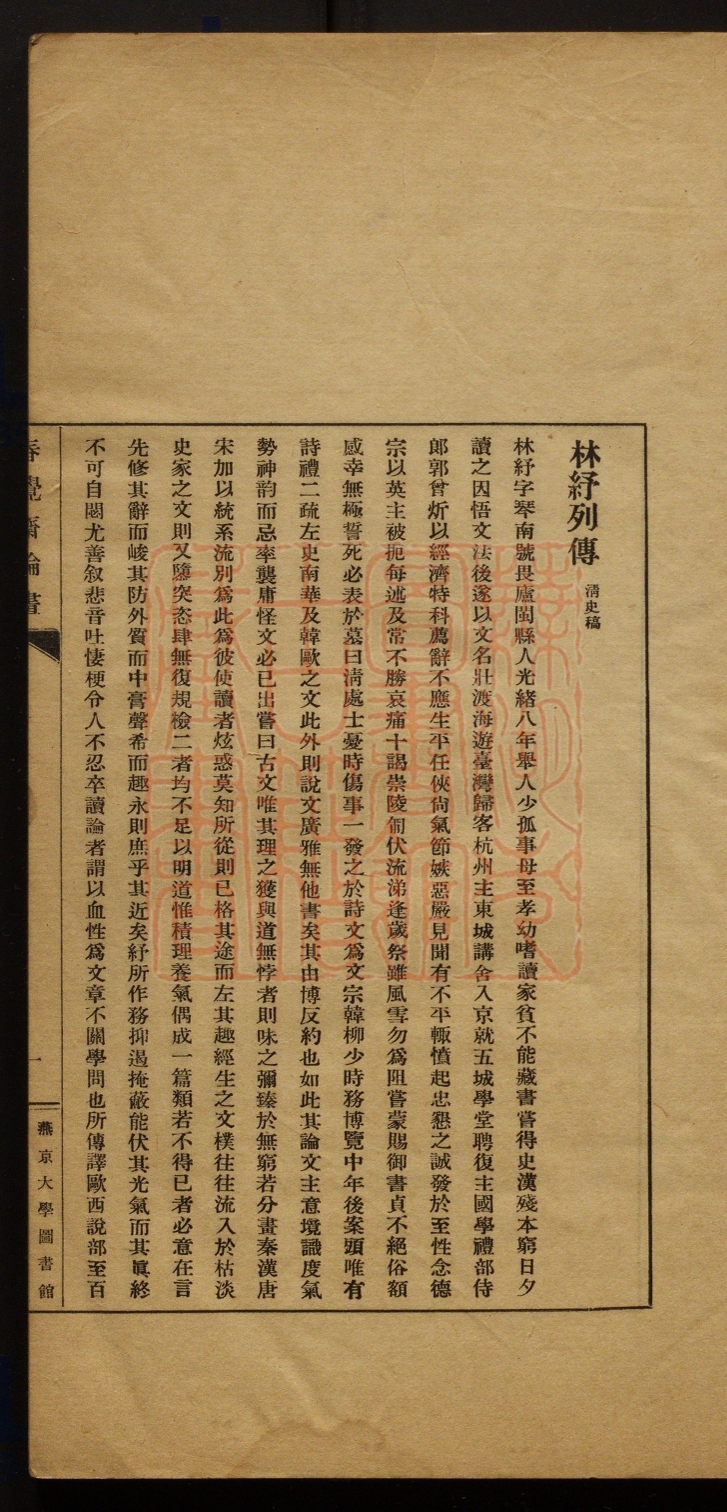 林紓列傳 清史稿
林紓字琴南號畏廬閩縣人光緒八年舉人少孤事母至孝幼嗜讀家貧不能藏書嘗得史漢殘本窮日夕
讀之因悟文法後遂以文名壯渡海遊臺灣歸客杭州主東城講舍入京就五城學堂聘復主國學禮部侍
郎郭曾炘以經濟特科薦辭不應生平任俠尙氣節嫉惡嚴見聞有不平輒憤起忠懇之誠發於至性念德
宗以英主被扼每述及常不勝哀痛十謁崇陵匍伏流涕逢歲祭雖風雪勿爲阻嘗蒙賜御書貞不絕俗額
感幸無極誓死必表於墓曰淸處士憂時傷事一發之於詩文爲文宗韓柳少時務博覽中年後案頭唯有
詩禮二疏左史南華及韓歐之文此外則說文廣雅無他書矣其由博反約也如此其論文主意境識度氣
勢神韵而忌率襲庸怪文必己出嘗曰古文唯其理之獲與道無悖者則味之彌臻於無窮若分畫秦漢唐
宋加以統系流別爲此爲彼使讀者炫惑莫知所從則已格其途而左其趣經生之文樸往往流入於枯淡
史家之文則又隳突恣肆無復規檢二者均不足以明道惟積理養氣偶成一篇類若不得已者必意在言
先修其辭而峻其防外質而中膏聲希而趣永則庶乎其近矣紓所作務抑遏掩蔽能伏其光氣而其眞終
不可自閟尤善敍悲音吐悽梗令人不忍卒讀論者謂以血性爲文章不關學問也所傳譯歐西說部至百
春覺齋論畫
一
燕京大學圖書館